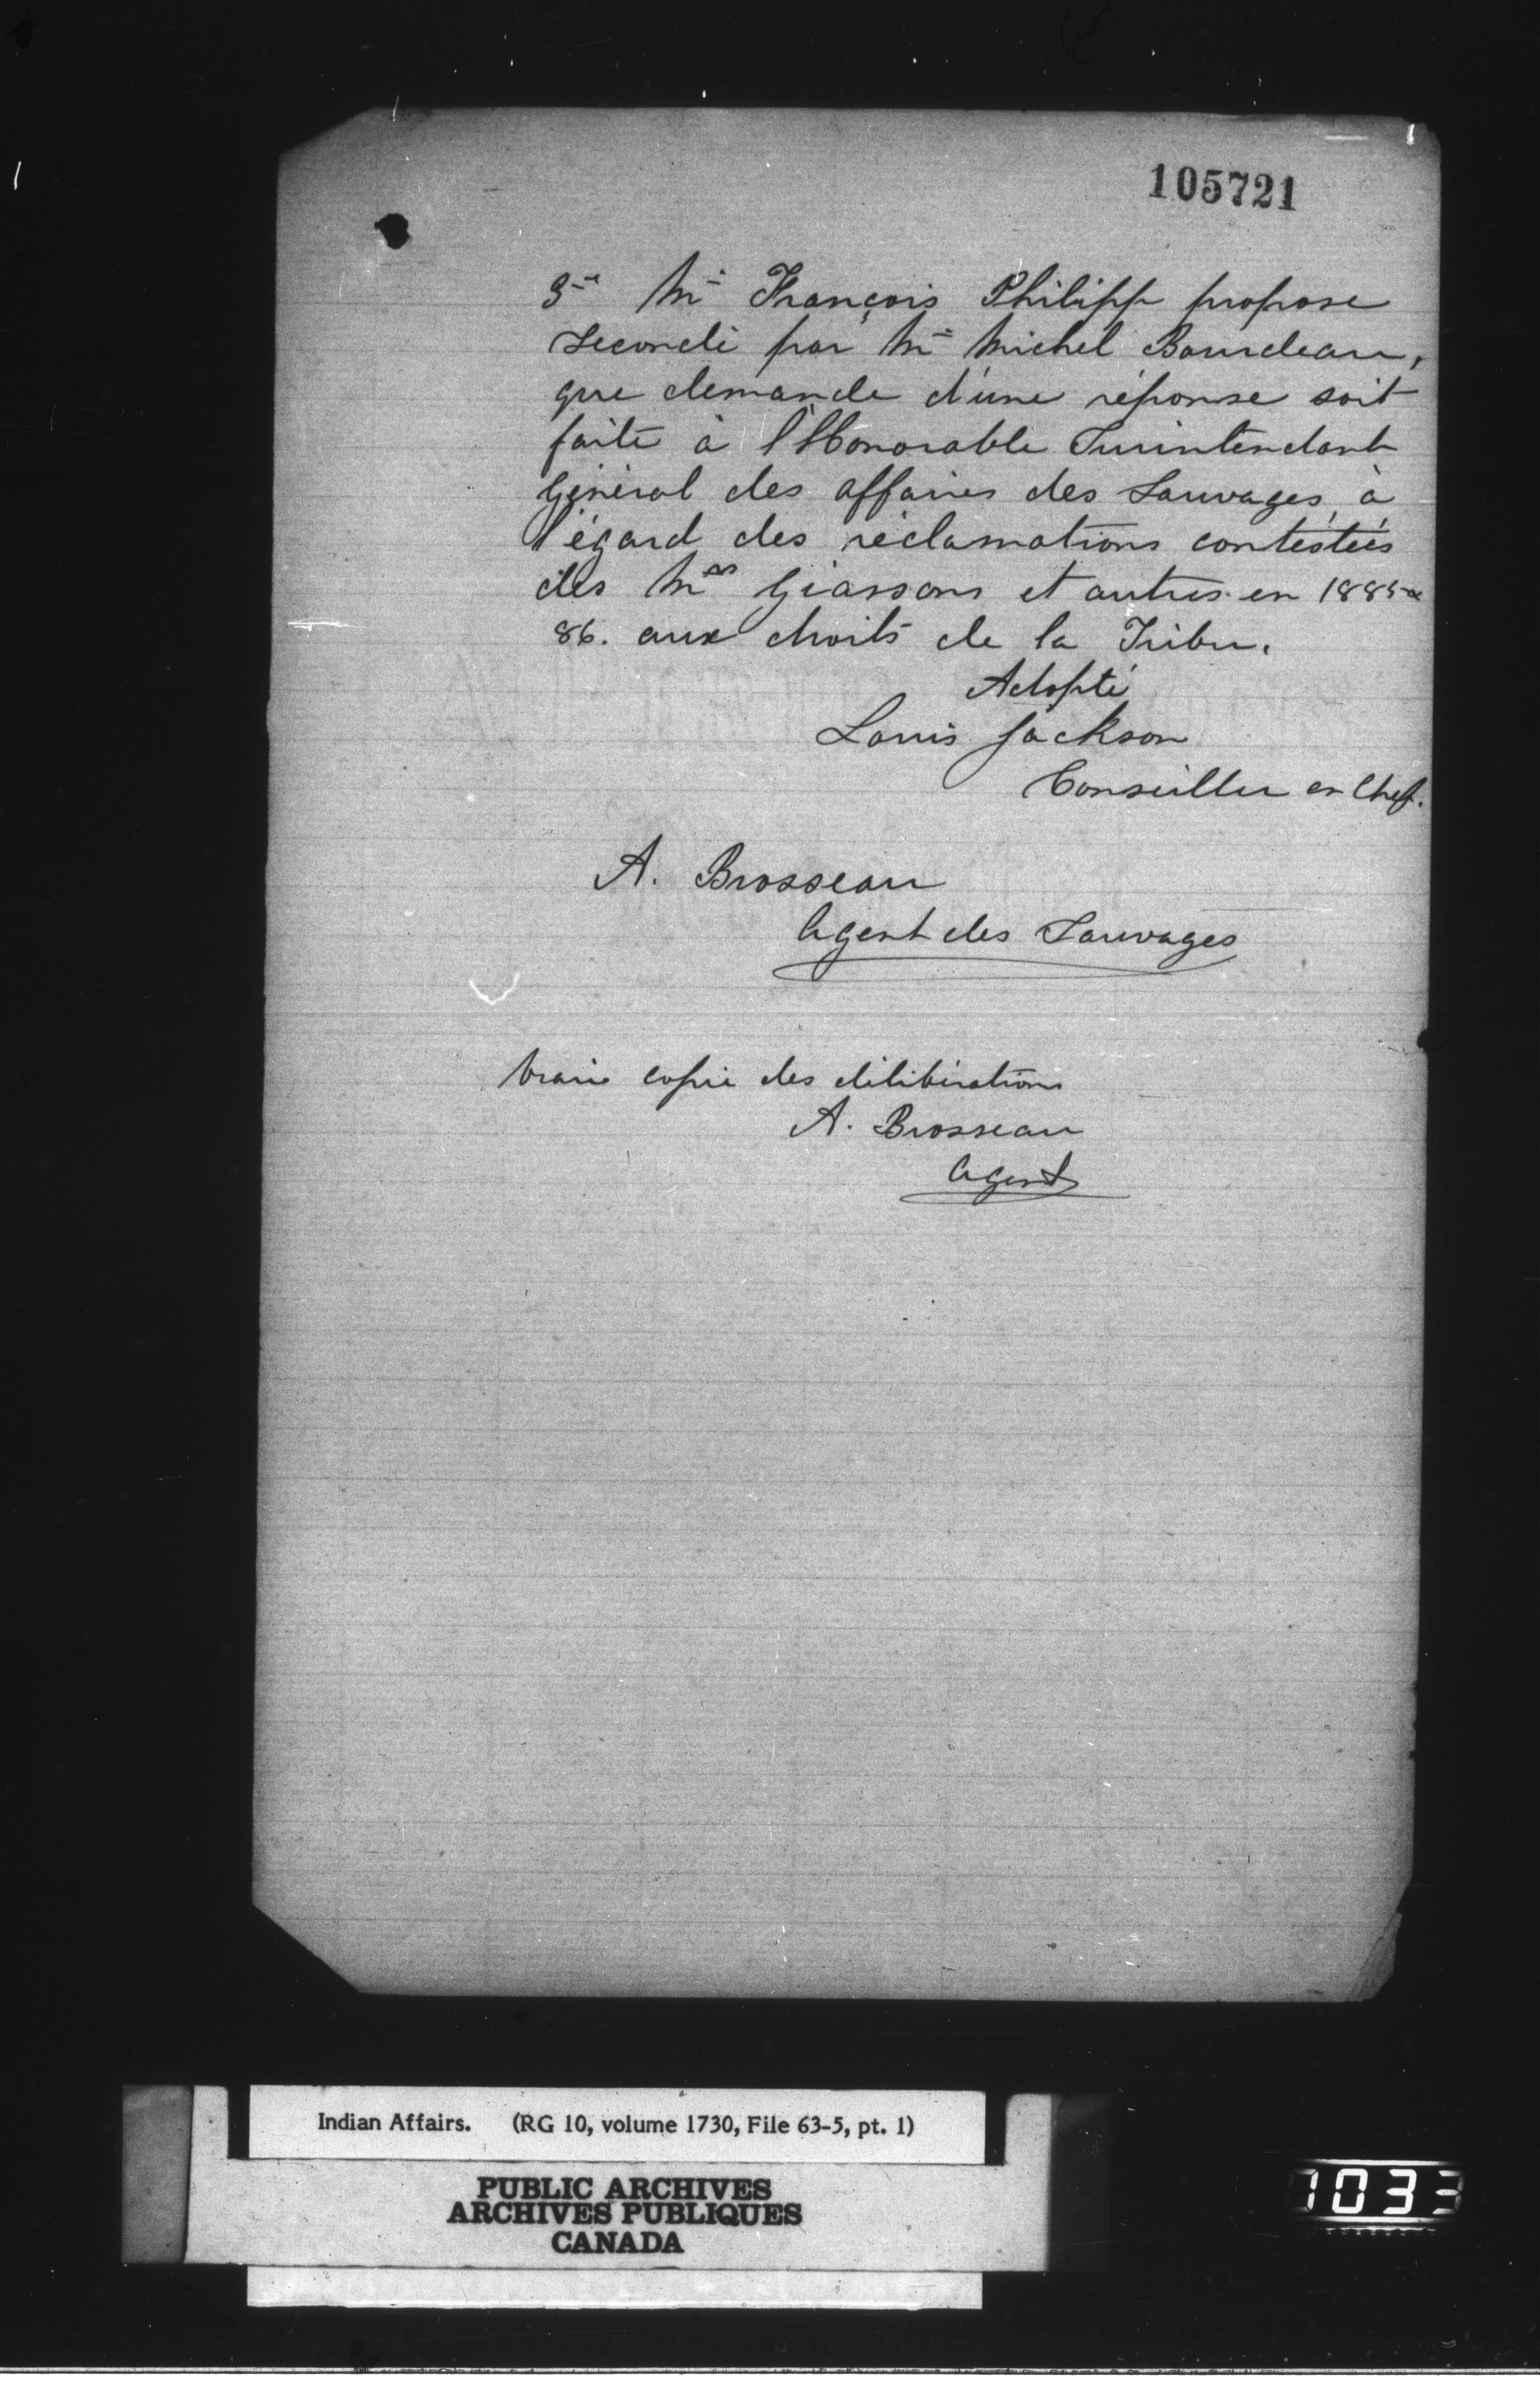 105721
3me Mr François Philipp propose
secondé par Mr Michel Bourdeau,
que demande d'une réponse soit
faite à l'Honorable Surintendant
Général des affaires des Sauvages, à
l'égard des réclamations contestées
des Mrs Giassons et autres en 1885 &
86. aux droits de la Tribu.
Adopté
Louis Jackson
Conseiller en Chef.
A. Brosseau
Agent des Sauvages
Vraie copie des délibérations
A. Brosseau
Agent
Indian Affairs. (RG 10, volume 1730, File 63-5, pt. 1)
PUBLIC ARCHIVES
ARCHIVES PUBLIQUES
CANADA
1033